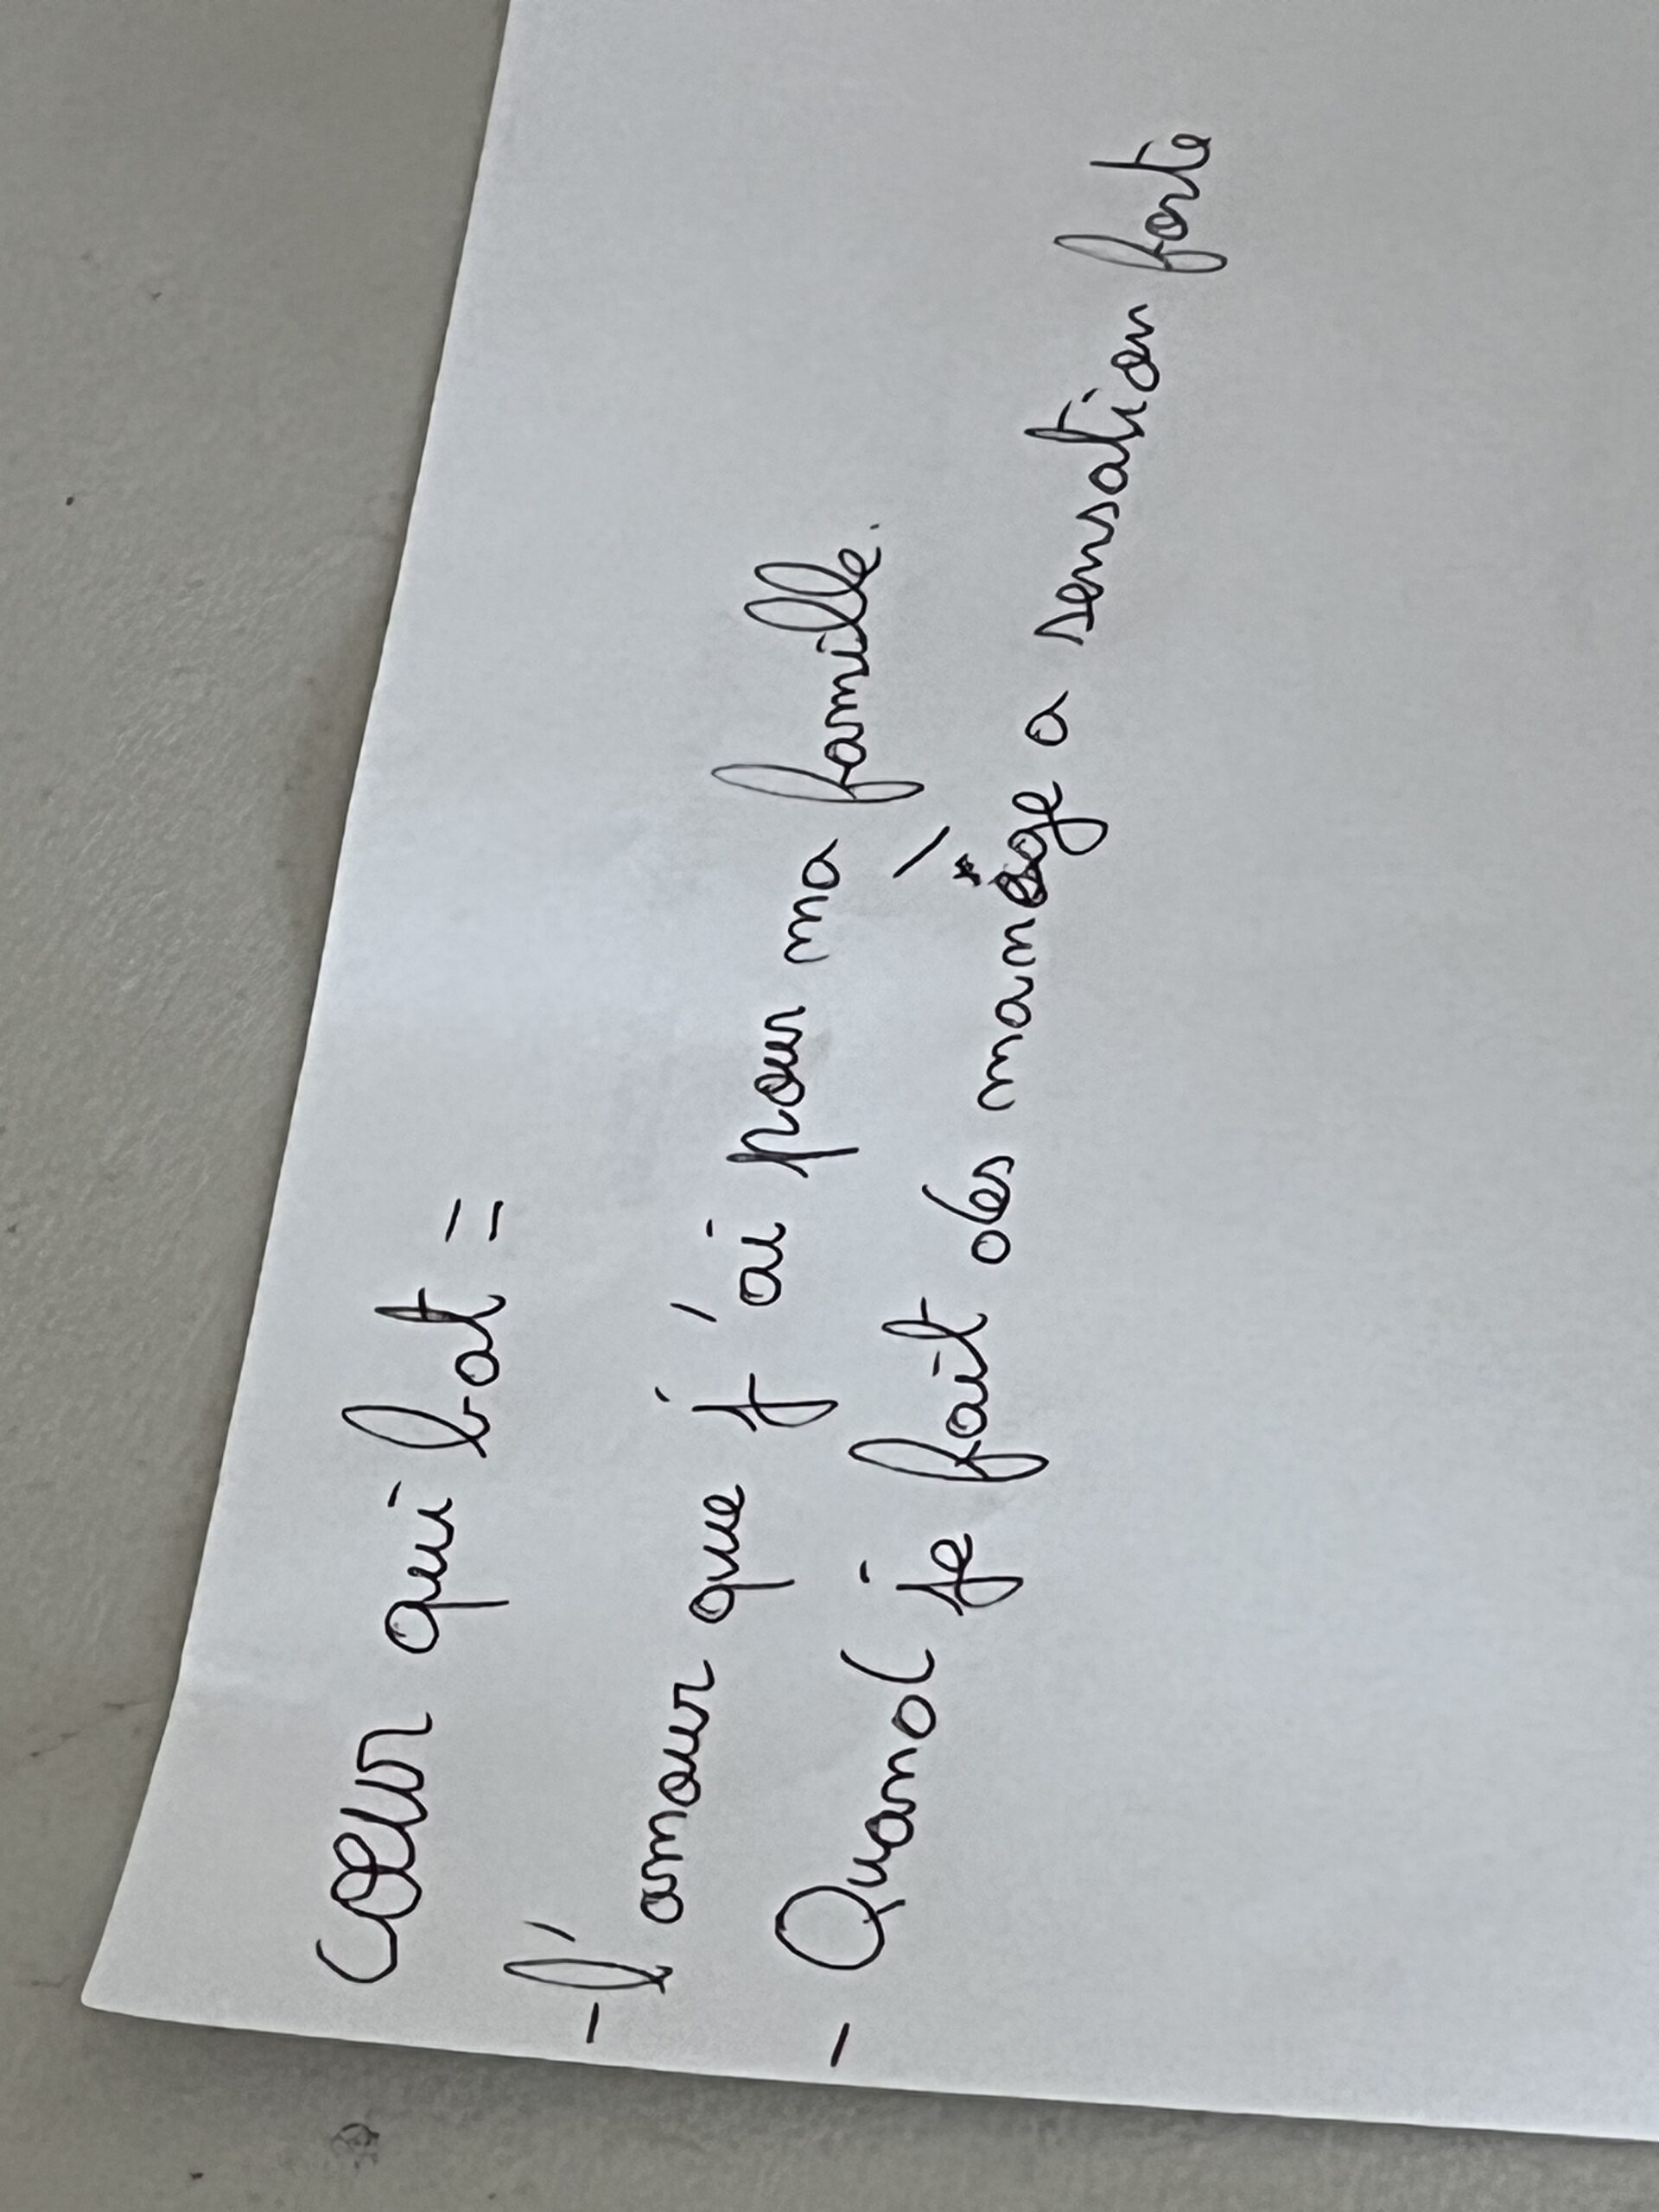 coeur qui bat =
- l'amour que j'ai pour ma famille.
- Quand je fait des manège a sensation forte